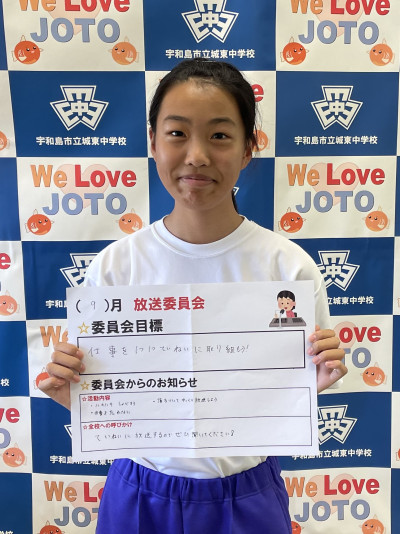 We Love
JOTO
宇和島市立城東中学校
We Love
JOTO
宇和島市立城東中学校
宇和島市立城東中学校
We Love
JOTO
We Love
JOTO
( 9 )月 放送委員会
☆委員会目標
仕事を1つ1つていねいに取り組もう!
☆委員会からのお知らせ
☆活動内容
☆全校への呼びかけ
ていねいに放送するのでぜひ聞いてください。
宇和島市立城東中学校
宇和島市立城東中学校
We Love
JOTO
We Love
JOTO